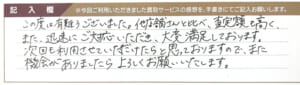 記入欄
※今回ご利用いただきました買取サービスの感想を、手書きにてご記入お願いします。
この度は有難うございました。他店舗さんとくらべ、査定額も高く、
また、迅速にご対応いただき、大変満足しております。
次回も利用させていただけたらと思っておりますので、また
機会がありましたらよろしくお願いいたします。